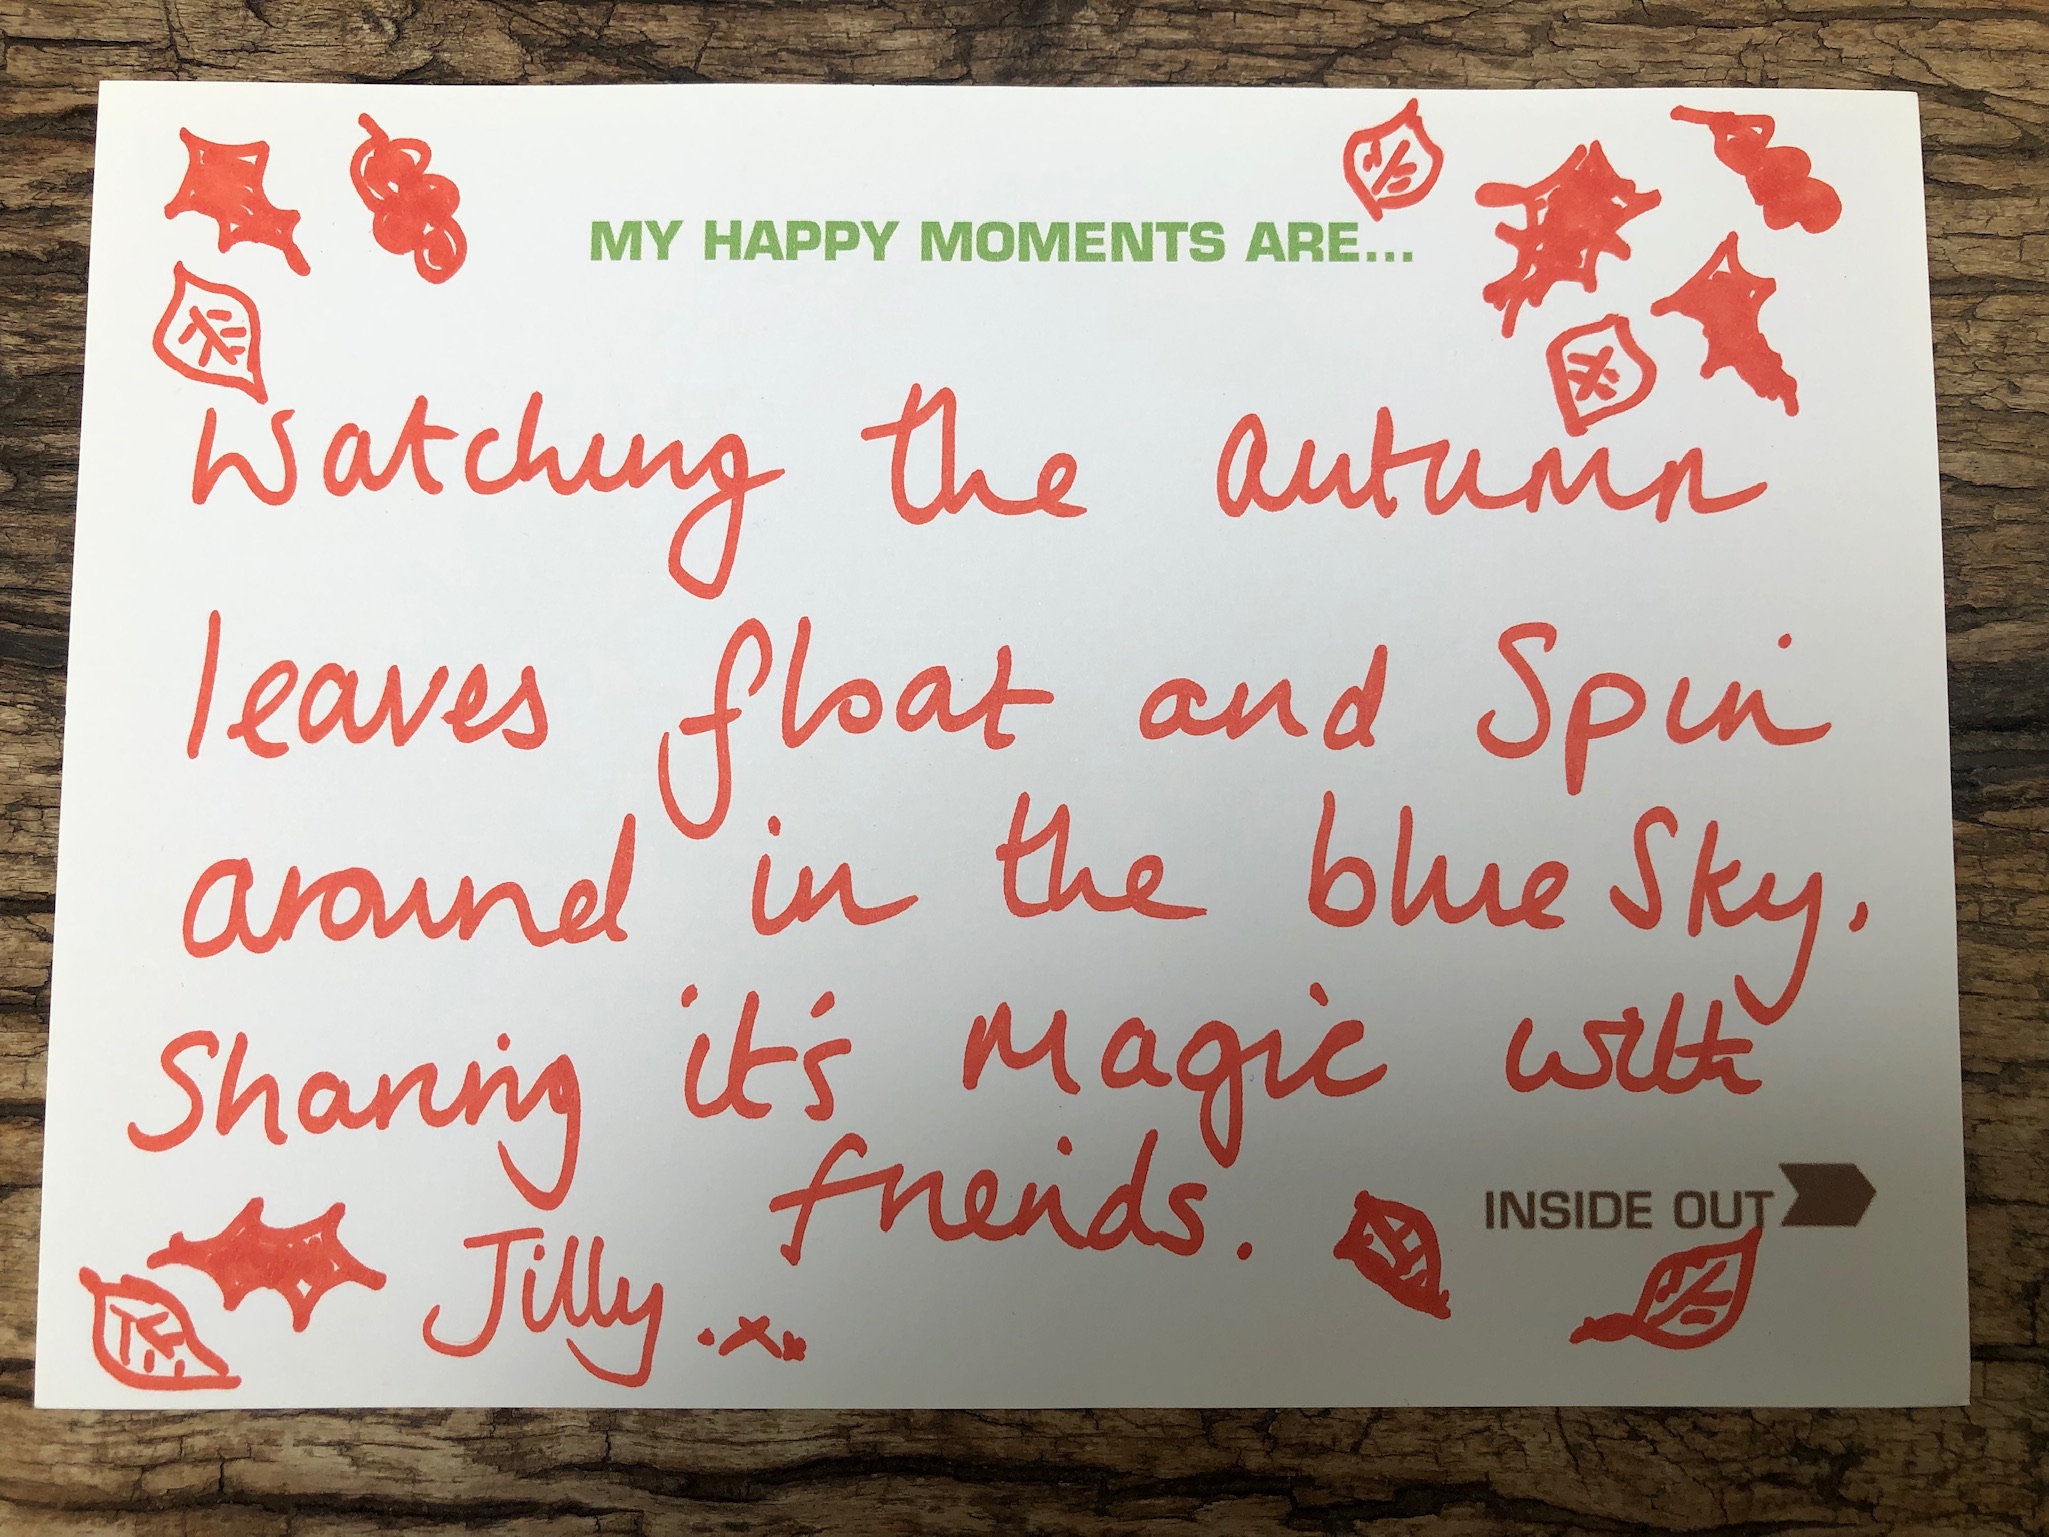 MY HAPPY MOMENTS ARE...
Watching the autumn
leaves float and Spin
around in the blue Sky.
Sharing it's magic with
friends.
INSIDE OUT
Jilly .x.